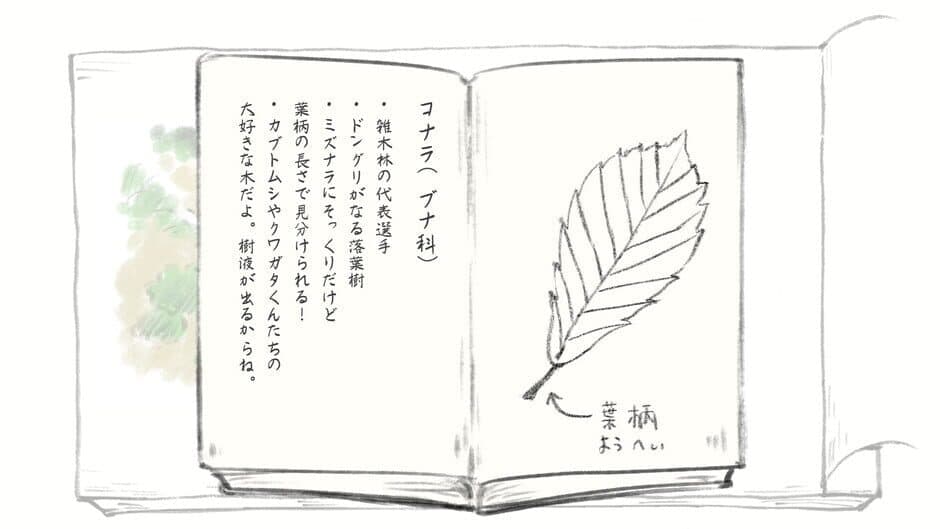 コナラ(ブナ科)
・雑木林の代表選手
・ドングリがなる落葉樹
・ミズナラにそっくりだけど
葉柄の長さで見分けられる！
・カブトムシやクワガタくんたちの
大好きな木だよ。樹液が出るからね。
葉柄
ようへい